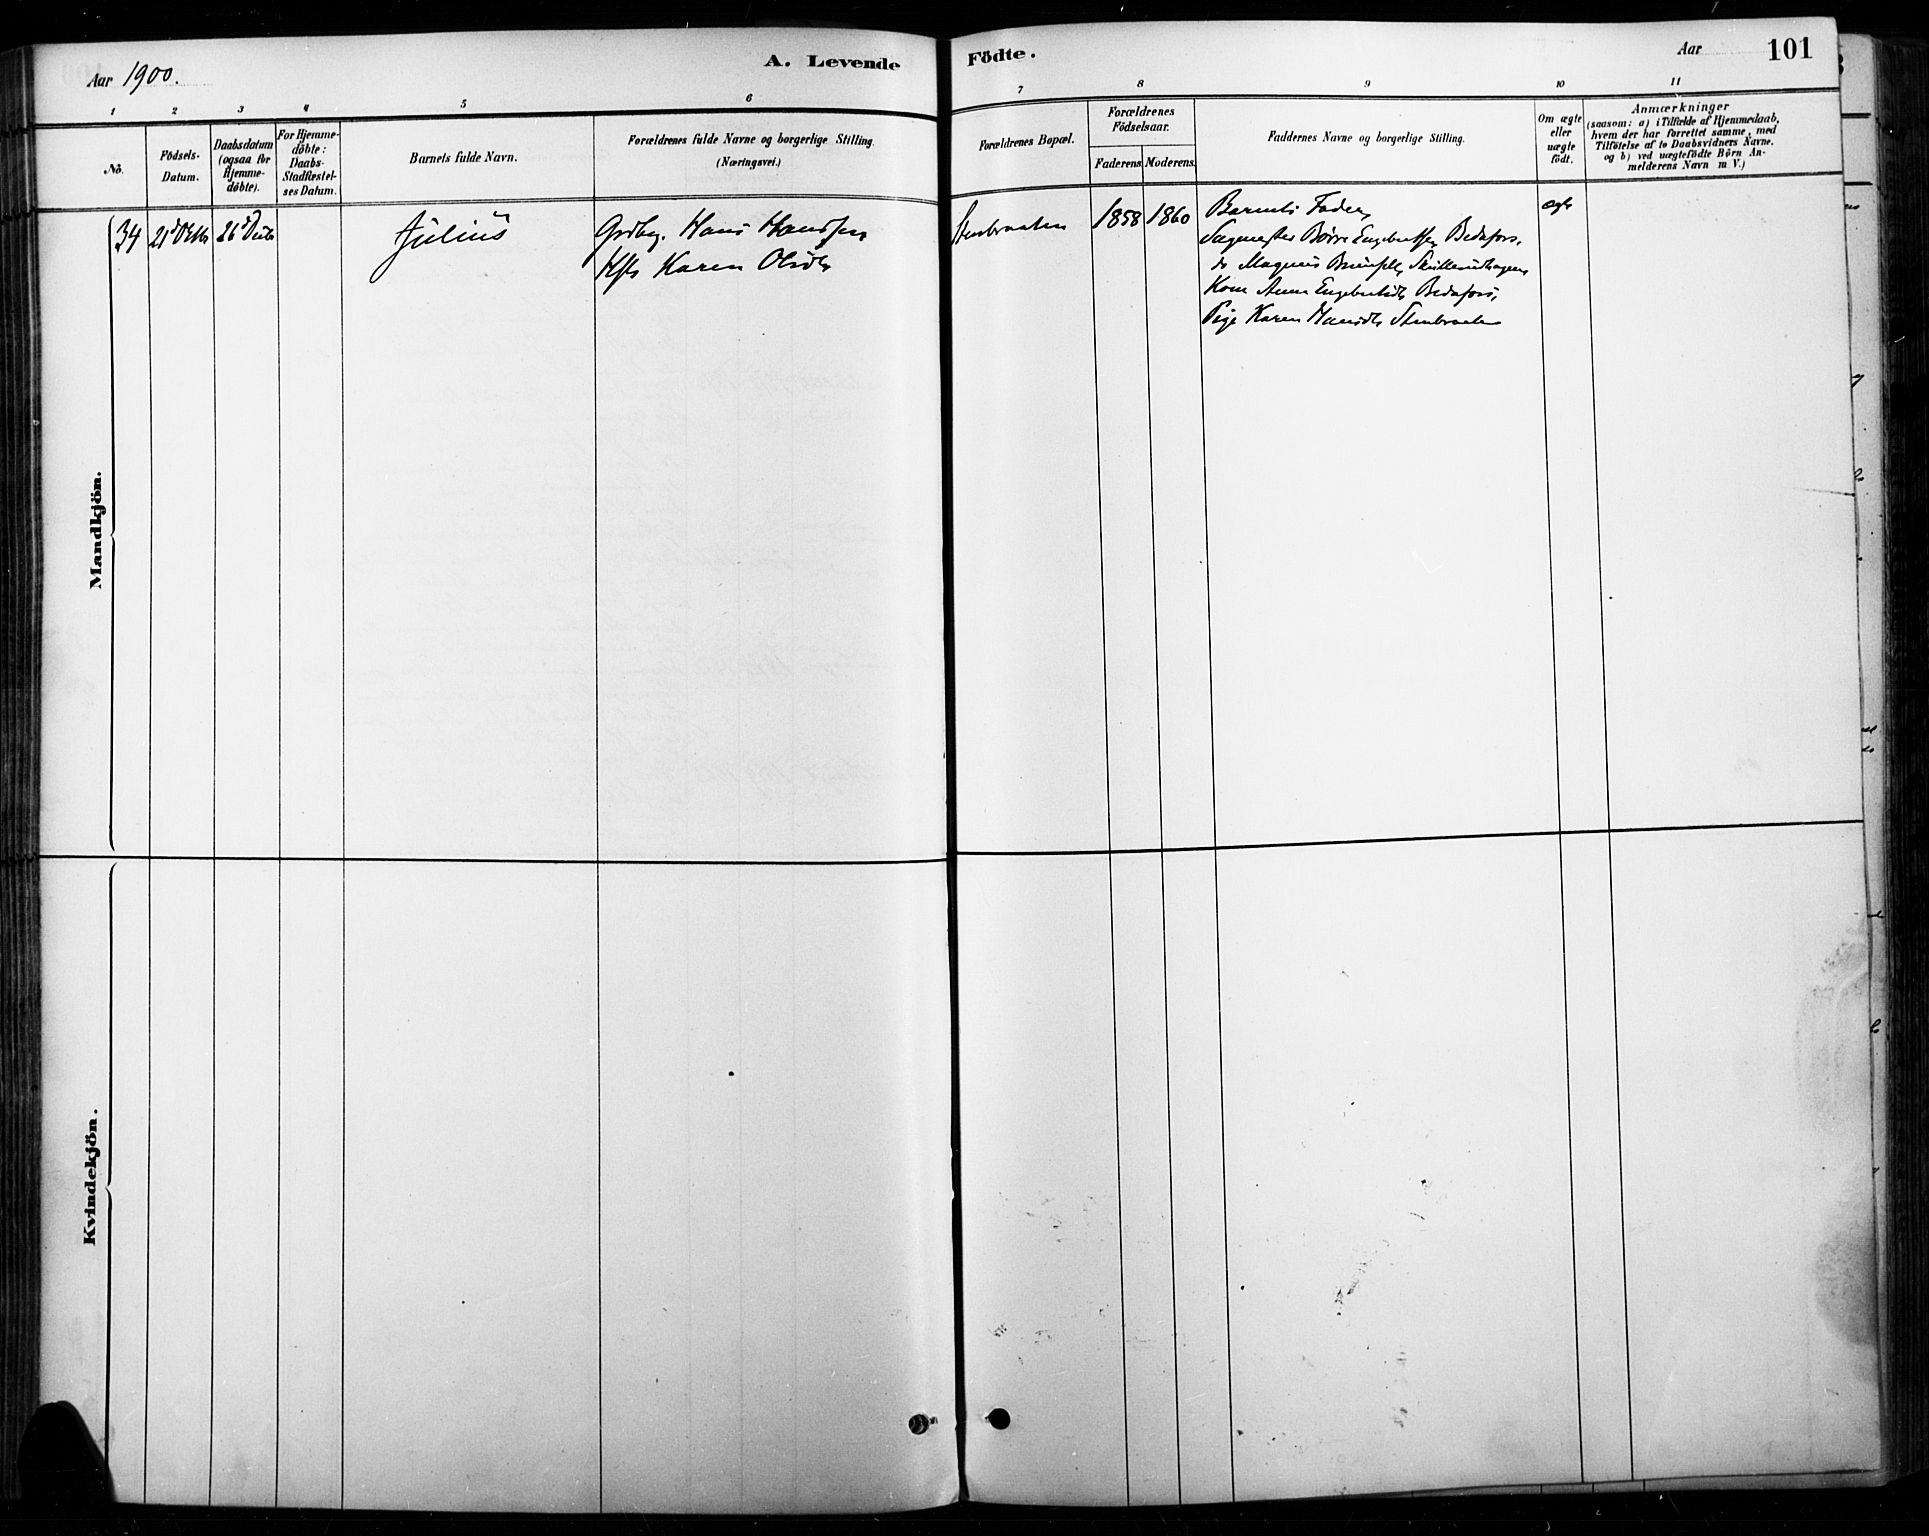 Aar 1900.
A. Levende
Födte.
Aar
101
1
2
3
4
5
6
7
8
9
10
11
No.
Födsels-
Datum.
Daabsdatum
(ogsaa for
Hjemme-
döbte).
For Hjemme-
döbte:
Daabs-
Stadfæstel-
ses Datum.
Barnets fulde Navn.
Forældrenes fulde Navne og borgerlige Stilling.
(Næringsvei.)
Forældrenes Bopæl.
Forældrenes
Födselsaar.
Faderens.
Moderens.
Faddernes Navne og borgerlige Stilling.
Om ægte
eller
uægte
födt.
Anmærkninger
(saasom: a) i Tilfælde af Hjemmedaab,
hvem der har forrettet samme, med
Tilföielse af to Daabsvidners Navne.
og b) ved uægtefödte Börn An-
melderens Navn m V.)
Mandkjön.
34
21 Oktb
26 Decb
Julius
Grdbg. Hans Hanssen
Kfh Karen Olsdtr
Stenbraaten
1858
1860
Barnets Fader,
Sagmester Børre Engebretsen Bedafors,
do Magnus
Kone Anna Engebretsdtr Bedafors,
Pige Karen Hansdtr Stenbraaten
ægte
Kvindekjön.